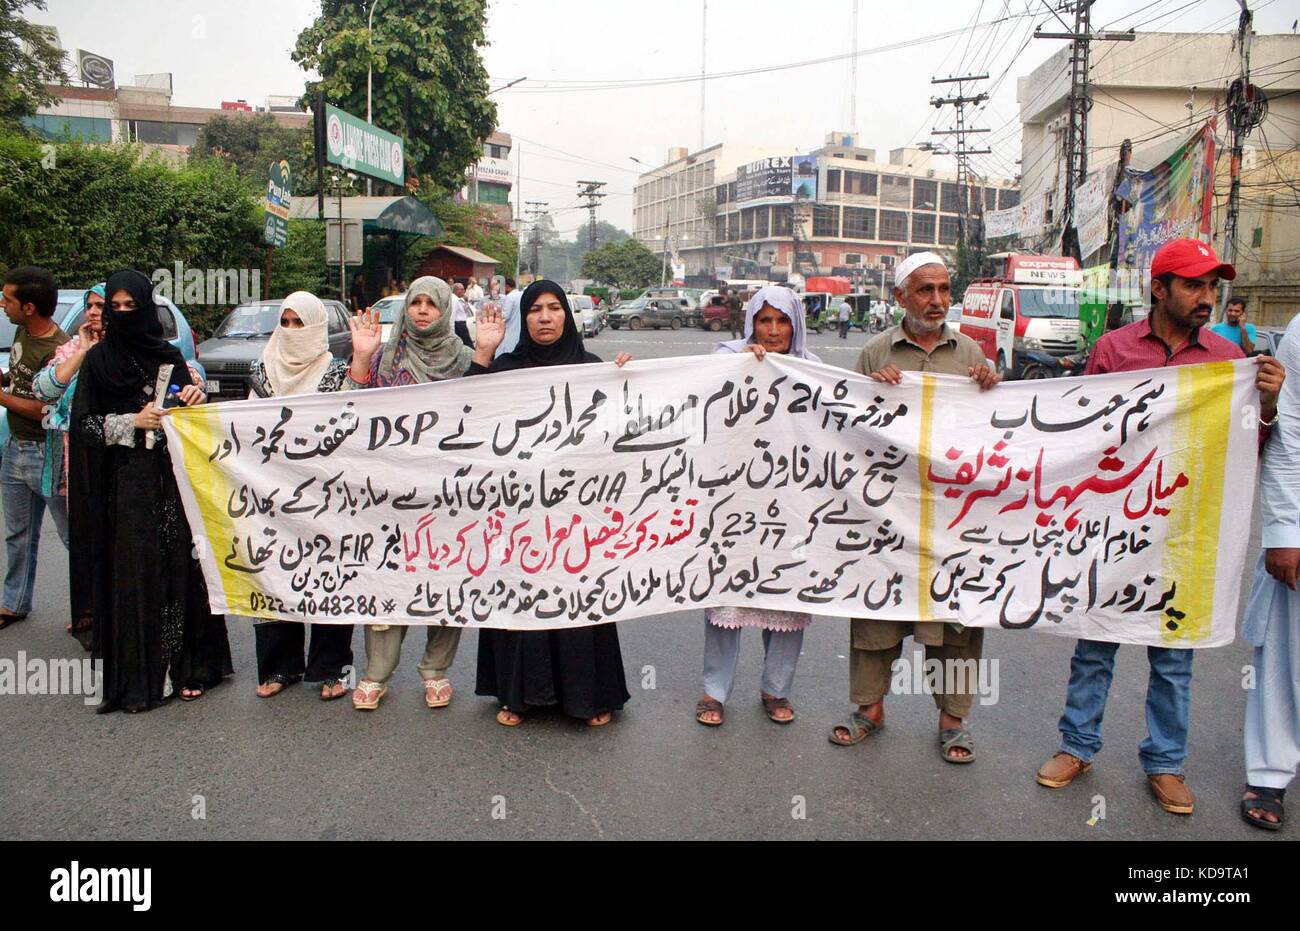 LAHORE PRESS CLUB
express
EXPRESS NEWS
express
ہم جناب
میاں شہباز شریف
خادم اعلیٰ پنجاب سے
پر زور اپیل کرتے ہیں
مورخہ 21 6/17 کو غلام مصطفےٰ، محمد ادریس نے DSP شفقت محمود اور
شیخ خالد فاروق سب انسپکٹر CIA تھانہ غازی آباد سے ساز باز کر کے بھاری
رشوت لے کر 23 6/17 کو تشدد کر کے فیصل معراج کو قتل کر دیا گیا بغیر FIR 2 دن تھانے
میں رکھنے کے بعد قتل کیا ملزمان کیخلاف مقدمہ درج کیا جائے # معراج دین 0322-4048286
alamy
Image ID: KD9TA1
www.alamy.com